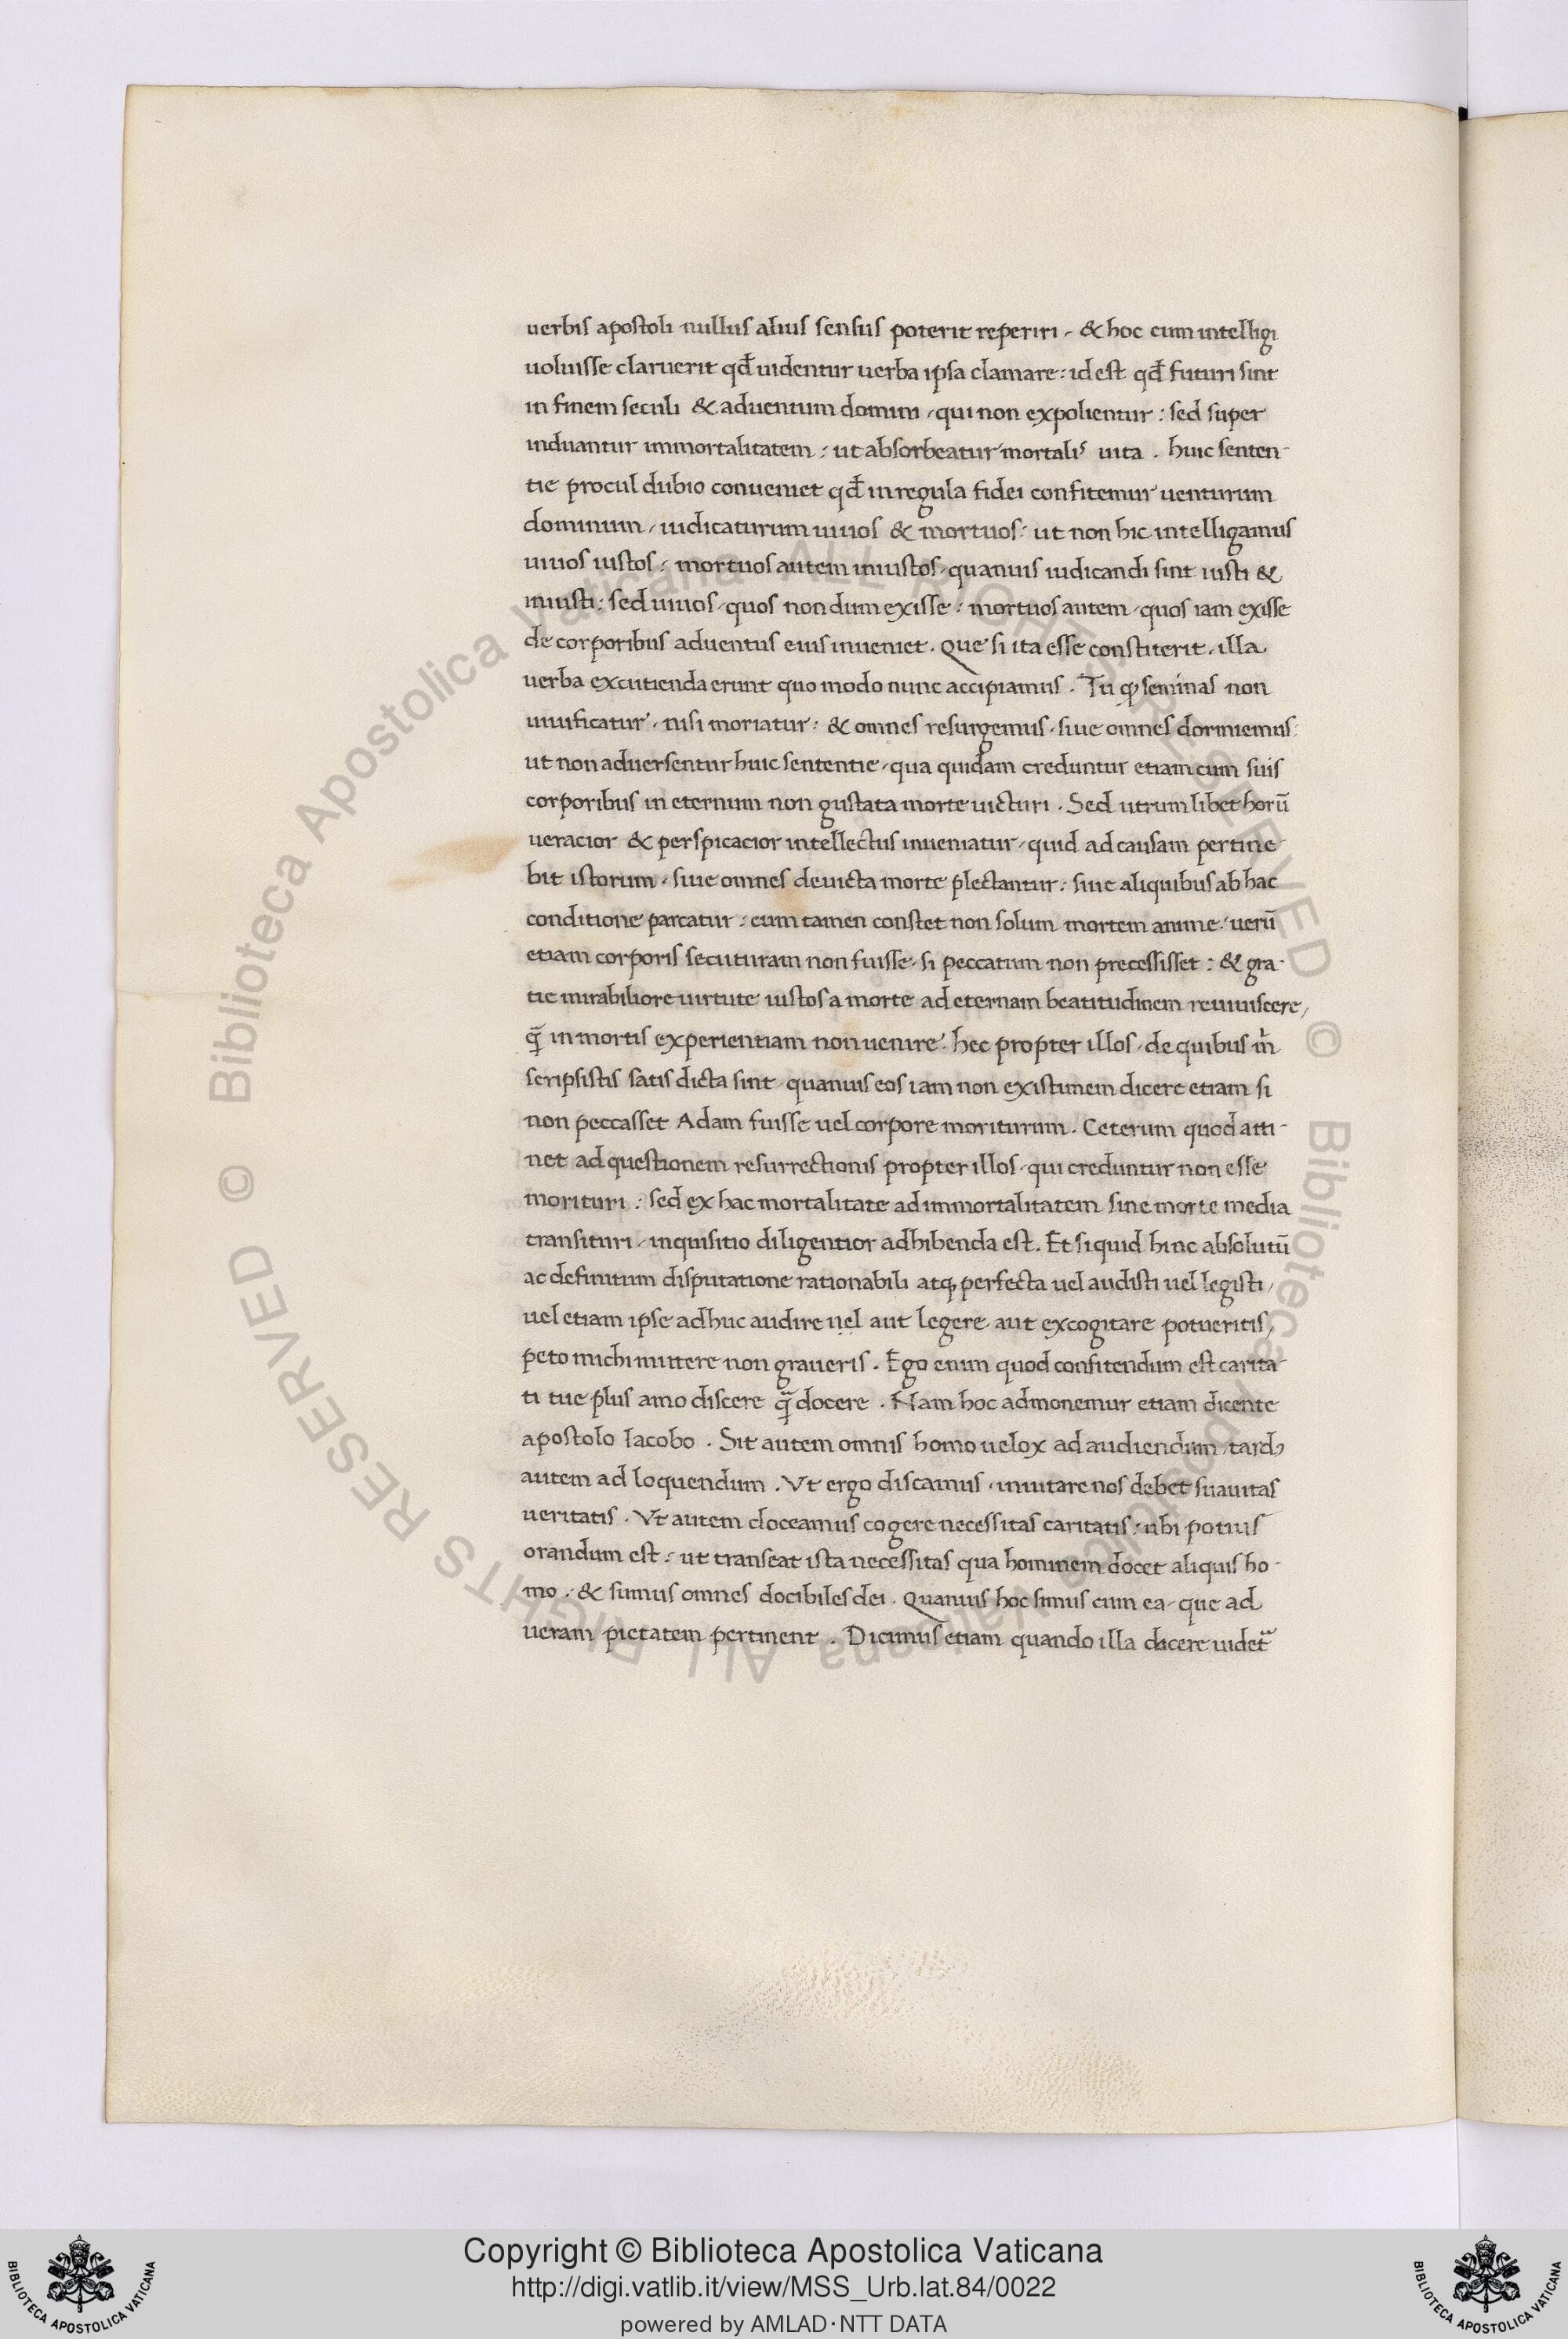 uerbis apostoli nullus alius sensus poterit reperiri, & hoc eum intelligi
uoluisse claruerit qđ uidentur uerba ipsa clamare: id est qđ futuri sint
in finem seculi & aduentum domini, qui non expolientur: sed super
induantur immortalitatem: ut absorbeatur mortalis uita. huic senten-
tie procul dubio conueniet qđ in regula fidei confitemur uenturum
dominum, iudicaturum uiuos & mortuos: ut non hic intelligamus
uiuos iustos: mortuos autem iniustos, quanuis iudicandi sint iusti &
iniusti: sed uiuos, quos nondum exisse: mortuos autem, quos iam exisse
de corporibus aduentus eius inueniet. Que si ita esse constiterit, illa
uerba excutienda erunt quo modo nunc accipiamus. Tu qͥ seminas non
uiuificatur, nisi moriatur: & omnes resurgemus, siue omnes dormiemus:
ut non aduersentur huic sententie, qua quidam creduntur etiam cum suis
corporibus in eternum non gustata morte uicturi. Sed utrum libet horū
ueracior & perspicacior intellectus inueniatur, quid ad causam pertine-
bit istorum, siue omnes deuicta morte plectantur: siue aliquibus ab hac
conditione parcatur: cum tamen constet non solum mortem anime, uerū
etiam corporis secuturam non fuisse, si peccatum non precessisset: & gra-
tie mirabiliore uirtute iustos a morte ad eternam beatitudinem reuiuiscere,
q̄ in mortis experientiam non uenire. hec propter illos, de quibus m̉
scripsistis satis dicta sint, quanuis eos iam non existimem dicere etiam si
non peccasset Adam fuisse uel corpore moriturum. Ceterum quod atti-
net ad questionem resurrectionis propter illos, qui creduntur non esse
morituri: sed ex hac mortalitate ad immortalitatem sine morte media
transituri, inquisitio diligentior adhibenda est. Et si quid hinc absolutū
ac definitum disputatione rationabili atqꝫ perfecta uel audisti uel legisti,
uel etiam ipse adhuc audire uel aut legere aut excogitare potueritis,
peto michi mittere non graueris. Ego enim quod confitendum est carita-
ti tue plus amo discere q̄ docere. Nam hoc admonemur etiam dicente
apostolo Iacobo. Sit autem omnis homo uelox ad audiendum, tardꝰ
autem ad loquendum. Vt ergo discamus, inuitare nos debet suauitas
ueritatis. Vt autem doceamus cogere necessitas caritatis: ubi potius
orandum est: ut transeat ista necessitas qua hominem docet aliquis ho-
mo: & simus omnes docibiles dei. Quanuis hoc simus cum ea, que ad
ueram pietatem pertinent. Dicimus etiam quando illa dicere uidet᷑
Biblioteca Apostolica Vaticana ALL RIGHTS RESERVED ©
Biblioteca Apostolica Vaticana ALL RIGHTS RESERVED ©
Copyright © Biblioteca Apostolica Vaticana
http://digi.vatlib.it/view/MSS_Urb.lat.84/0022
powered by AMLAD·NTT DATA
BIBLIOTECA APOSTOLICA VATICANA
BIBLIOTECA APOSTOLICA VATICANA